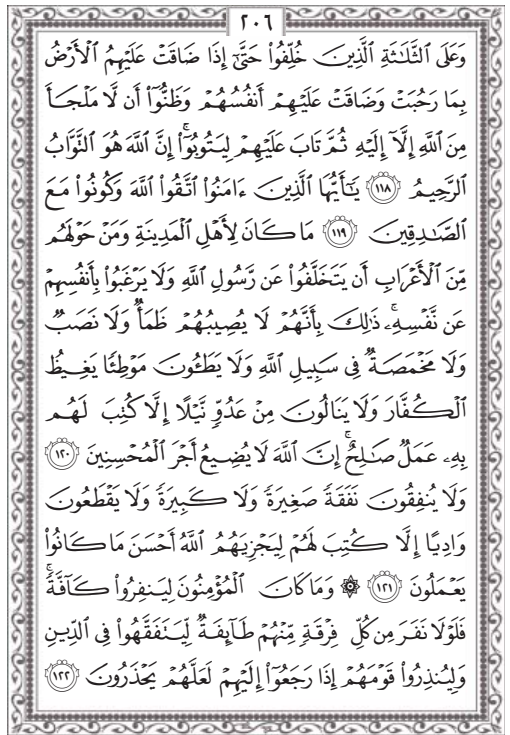 ٢٠٦
وَعَلَى ٱلثَّلَٰثَةِ ٱلَّذِينَ خُلِّفُوا۟ حَتَّىٰٓ إِذَا ضَاقَتْ عَلَيْهِمُ ٱلْأَرْضُ
بِمَا رَحُبَتْ وَضَاقَتْ عَلَيْهِمْ أَنفُسُهُمْ وَظَنُّوٓا۟ أَن لَّا مَلْجَأَ
مِنَ ٱللَّهِ إِلَّآ إِلَيْهِ ثُمَّ تَابَ عَلَيْهِمْ لِيَتُوبُوٓا۟ۚ إِنَّ ٱللَّهَ هُوَ ٱلتَّوَّابُ
ٱلرَّحِيمُ ١١٨ يَٰٓأَيُّهَا ٱلَّذِينَ ءَامَنُوا۟ ٱتَّقُوا۟ ٱللَّهَ وَكُونُوا۟ مَعَ
ٱلصَّٰدِقِينَ ١١٩ مَا كَانَ لِأَهْلِ ٱلْمَدِينَةِ وَمَنْ حَوْلَهُم
مِّنَ ٱلْأَعْرَابِ أَن يَتَخَلَّفُوا۟ عَن رَّسُولِ ٱللَّهِ وَلَا يَرْغَبُوا۟ بِأَنفُسِهِمْ
عَن نَّفْسِهِۦۚ ذَٰلِكَ بِأَنَّهُمْ لَا يُصِيبُهُمْ ظَمَأٌ وَلَا نَصَبٌ
وَلَا مَخْمَصَةٌ فِى سَبِيلِ ٱللَّهِ وَلَا يَطَـُٔونَ مَوْطِئًا يَغِيظُ
ٱلْكُفَّارَ وَلَا يَنَالُونَ مِنْ عَدُوٍّ نَّيْلًا إِلَّا كُتِبَ لَهُم
بِهِۦ عَمَلٌ صَٰلِحٌۚ إِنَّ ٱللَّهَ لَا يُضِيعُ أَجْرَ ٱلْمُحْسِنِينَ ١٢٠
وَلَا يُنفِقُونَ نَفَقَةً صَغِيرَةً وَلَا كَبِيرَةً وَلَا يَقْطَعُونَ
وَادِيًا إِلَّا كُتِبَ لَهُمْ لِيَجْزِيَهُمُ ٱللَّهُ أَحْسَنَ مَا كَانُوا۟
يَعْمَلُونَ ١٢١ ۞ وَمَا كَانَ ٱلْمُؤْمِنُونَ لِيَنفِرُوا۟ كَآفَّةًۚ
فَلَوْلَا نَفَرَ مِن كُلِّ فِرْقَةٍ مِّنْهُمْ طَآئِفَةٌ لِّيَتَفَقَّهُوا۟ فِى ٱلدِّينِ
وَلِيُنذِرُوا۟ قَوْمَهُمْ إِذَا رَجَعُوٓا۟ إِلَيْهِمْ لَعَلَّهُمْ يَحْذَرُونَ ١٢٢